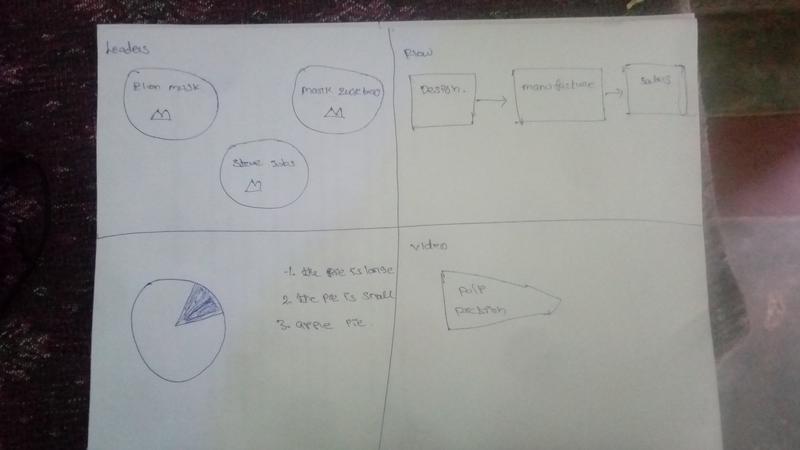 Leaders
Elon mask
mask zuckerberg
Steve Jobs
Flow
Design.
manufacture
Sales
1. the pie is large
2. the pie is small
3. apple pie.
video
pulp